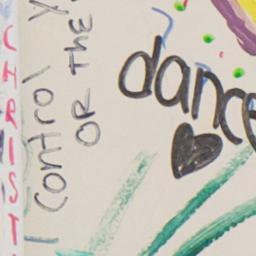 CHRIST
control y
OR THE
dance